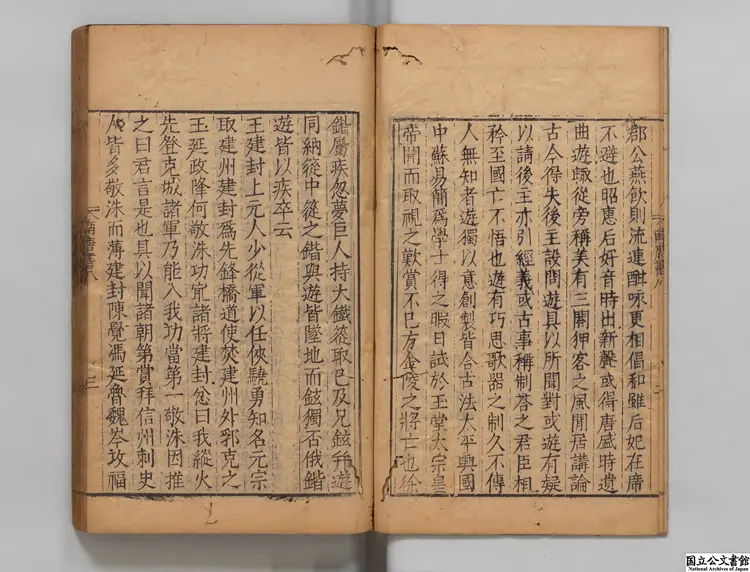 郡公燕飲則流連酣咏更相倡和雖后妃在席
不避也昭惠后好音時出新聲或得唐盛時遺
曲遊輙從旁稱美有三閣狎客之風閒居講論
古今得失後主設問遊具以所聞對或遊有疑
以請後主亦引經義或古事稱制荅之君臣相
矜至國亡不悟也遊有巧思欹器之制久不傳
人無知者遊獨以意創製皆合古法太平興國
中蘇易簡爲學士得之暇日試於玉堂太宗皇
帝聞而取視之歎賞不已方金陵之將亡也徐
鍇屬疾忽夢巨人持大鐵簁取已及兄鉉并遊
同納簁中簁之鍇與遊皆墜地而鉉獨否俄鍇
遊皆以疾卒云
王建封上元人少從軍以任俠驍勇知名元宗
取建州建封爲先鋒橋道使䇲建州外郛克之
王延政降何敬洙功冠諸將建封忿曰我縱火
先登克城諸軍乃能入我功當第一敬洙因推
之曰君言是也具以聞諸朝第賞拜信州刺史
人皆多敬洙而薄建封陳覺馮延魯魏岑攻福
南唐書八
二
南唐書八
三
国立公文書館
National Archives of Japan